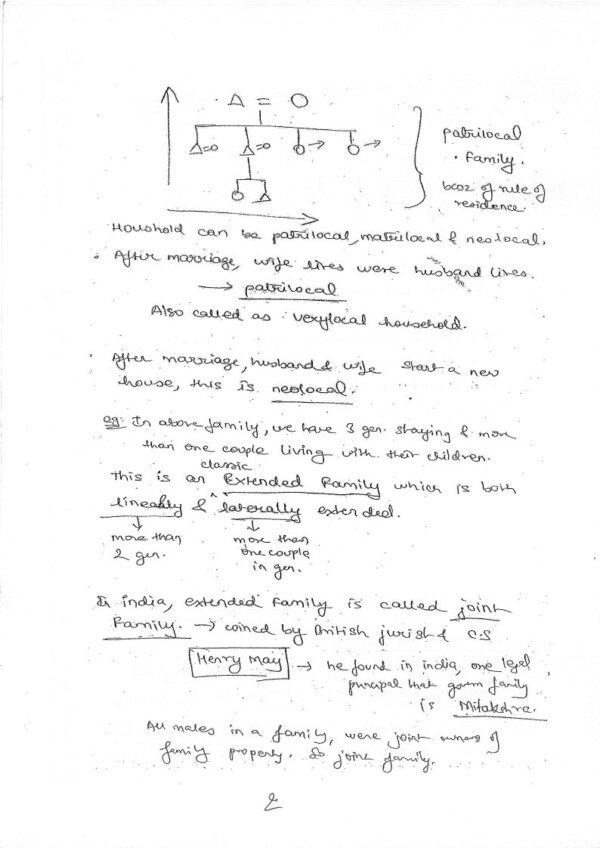 Δ = O
Δ=O Δ=O O→ O→
O Δ
patrilocal
. Family.
bcoz of rule of
residence.
Houshold can be patrilocal, matrilocal & neolocal.
. After marriage, wife lives were husband lives.
→ patrilocal
Also called as verylocal household.
. After marriage, husband & wife start a new
house, this is neolocal.
eg: In above family, we have 3 gen. staying & more
than one couple living with their children.
classic
this is an ^ Extended Family which is both
lineably & laterally extended.
↓ ↓
more than more than
2 gen. one couple
in gen.
In india, extended Family is called joint
Family. → coined by British jurist & C.S
Henry May → he found in india, one legel
principal that govern family
is Mitakshra.
All males in a family, were joint owners of
family property. So joint family.